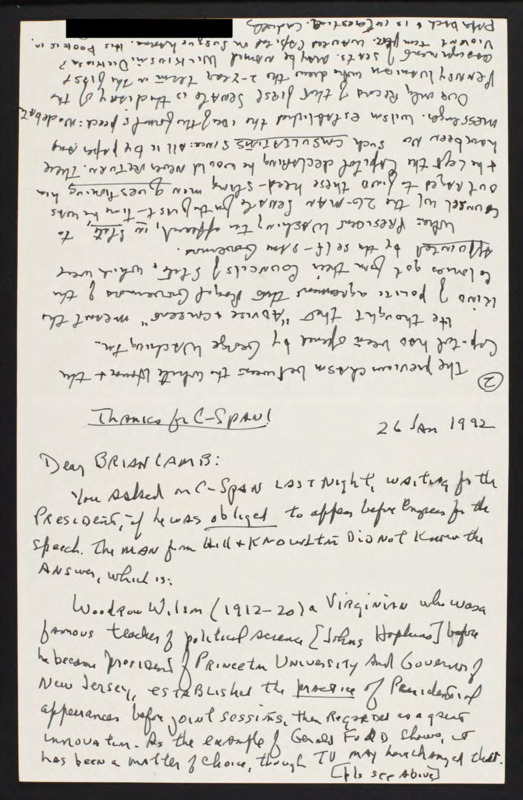 Thanks for C-SPAN!
26 Jan 1992
Dear BRIAN LAMB:
You asked on C-SPAN LAST Night, waiting for the
President, if he was obliged to appear before Congress for the
speech. The MAN from Hill + KNOWLTON DID NOT KNOW the
ANSWER, which is:
Woodrow Wilson (1912-20) a Virginian who was a
famous teacher of political science [Johns Hopkins] before
he became President of PRINCETON UNIVERSITY And Governor of
New Jersey, ESTABLISHED the practice of Presidential
appearances before joint sessions, then REGARDED as a great
innovation. As the example of Gerald FORD shows, it
has been a matter of choice, though TV may have changed that.
[Pls see above]
2
The previous chasm between the White House + the
Capitol had been opened by George Washington.
He thought that "Advise + consent" meant the
kind of polite agreement that Royal Governors of the
Colonies got from their Councils of State, which were
Appointed by the self-same Governors.
When President Washington appeared, in state, to
Counsel w/ the 26-MAN Senate for the first time he was
outraged to find these head-strong men questioning him
+ he left the Capitol declaring he would never return. There
have been no such CONSULTATIONS since: all is by paper and
messenger. Wilson established the idea of the formal speech: no debate
Our only Record of that first Senate is the diary of the
Pennsylvanian who drew the 2-year term in the first
assignment of seats. May be named Dickinson?
Violent temper, wanted Capitol on Susquehanna. His book is in
paperback + is interesting. Cordially,